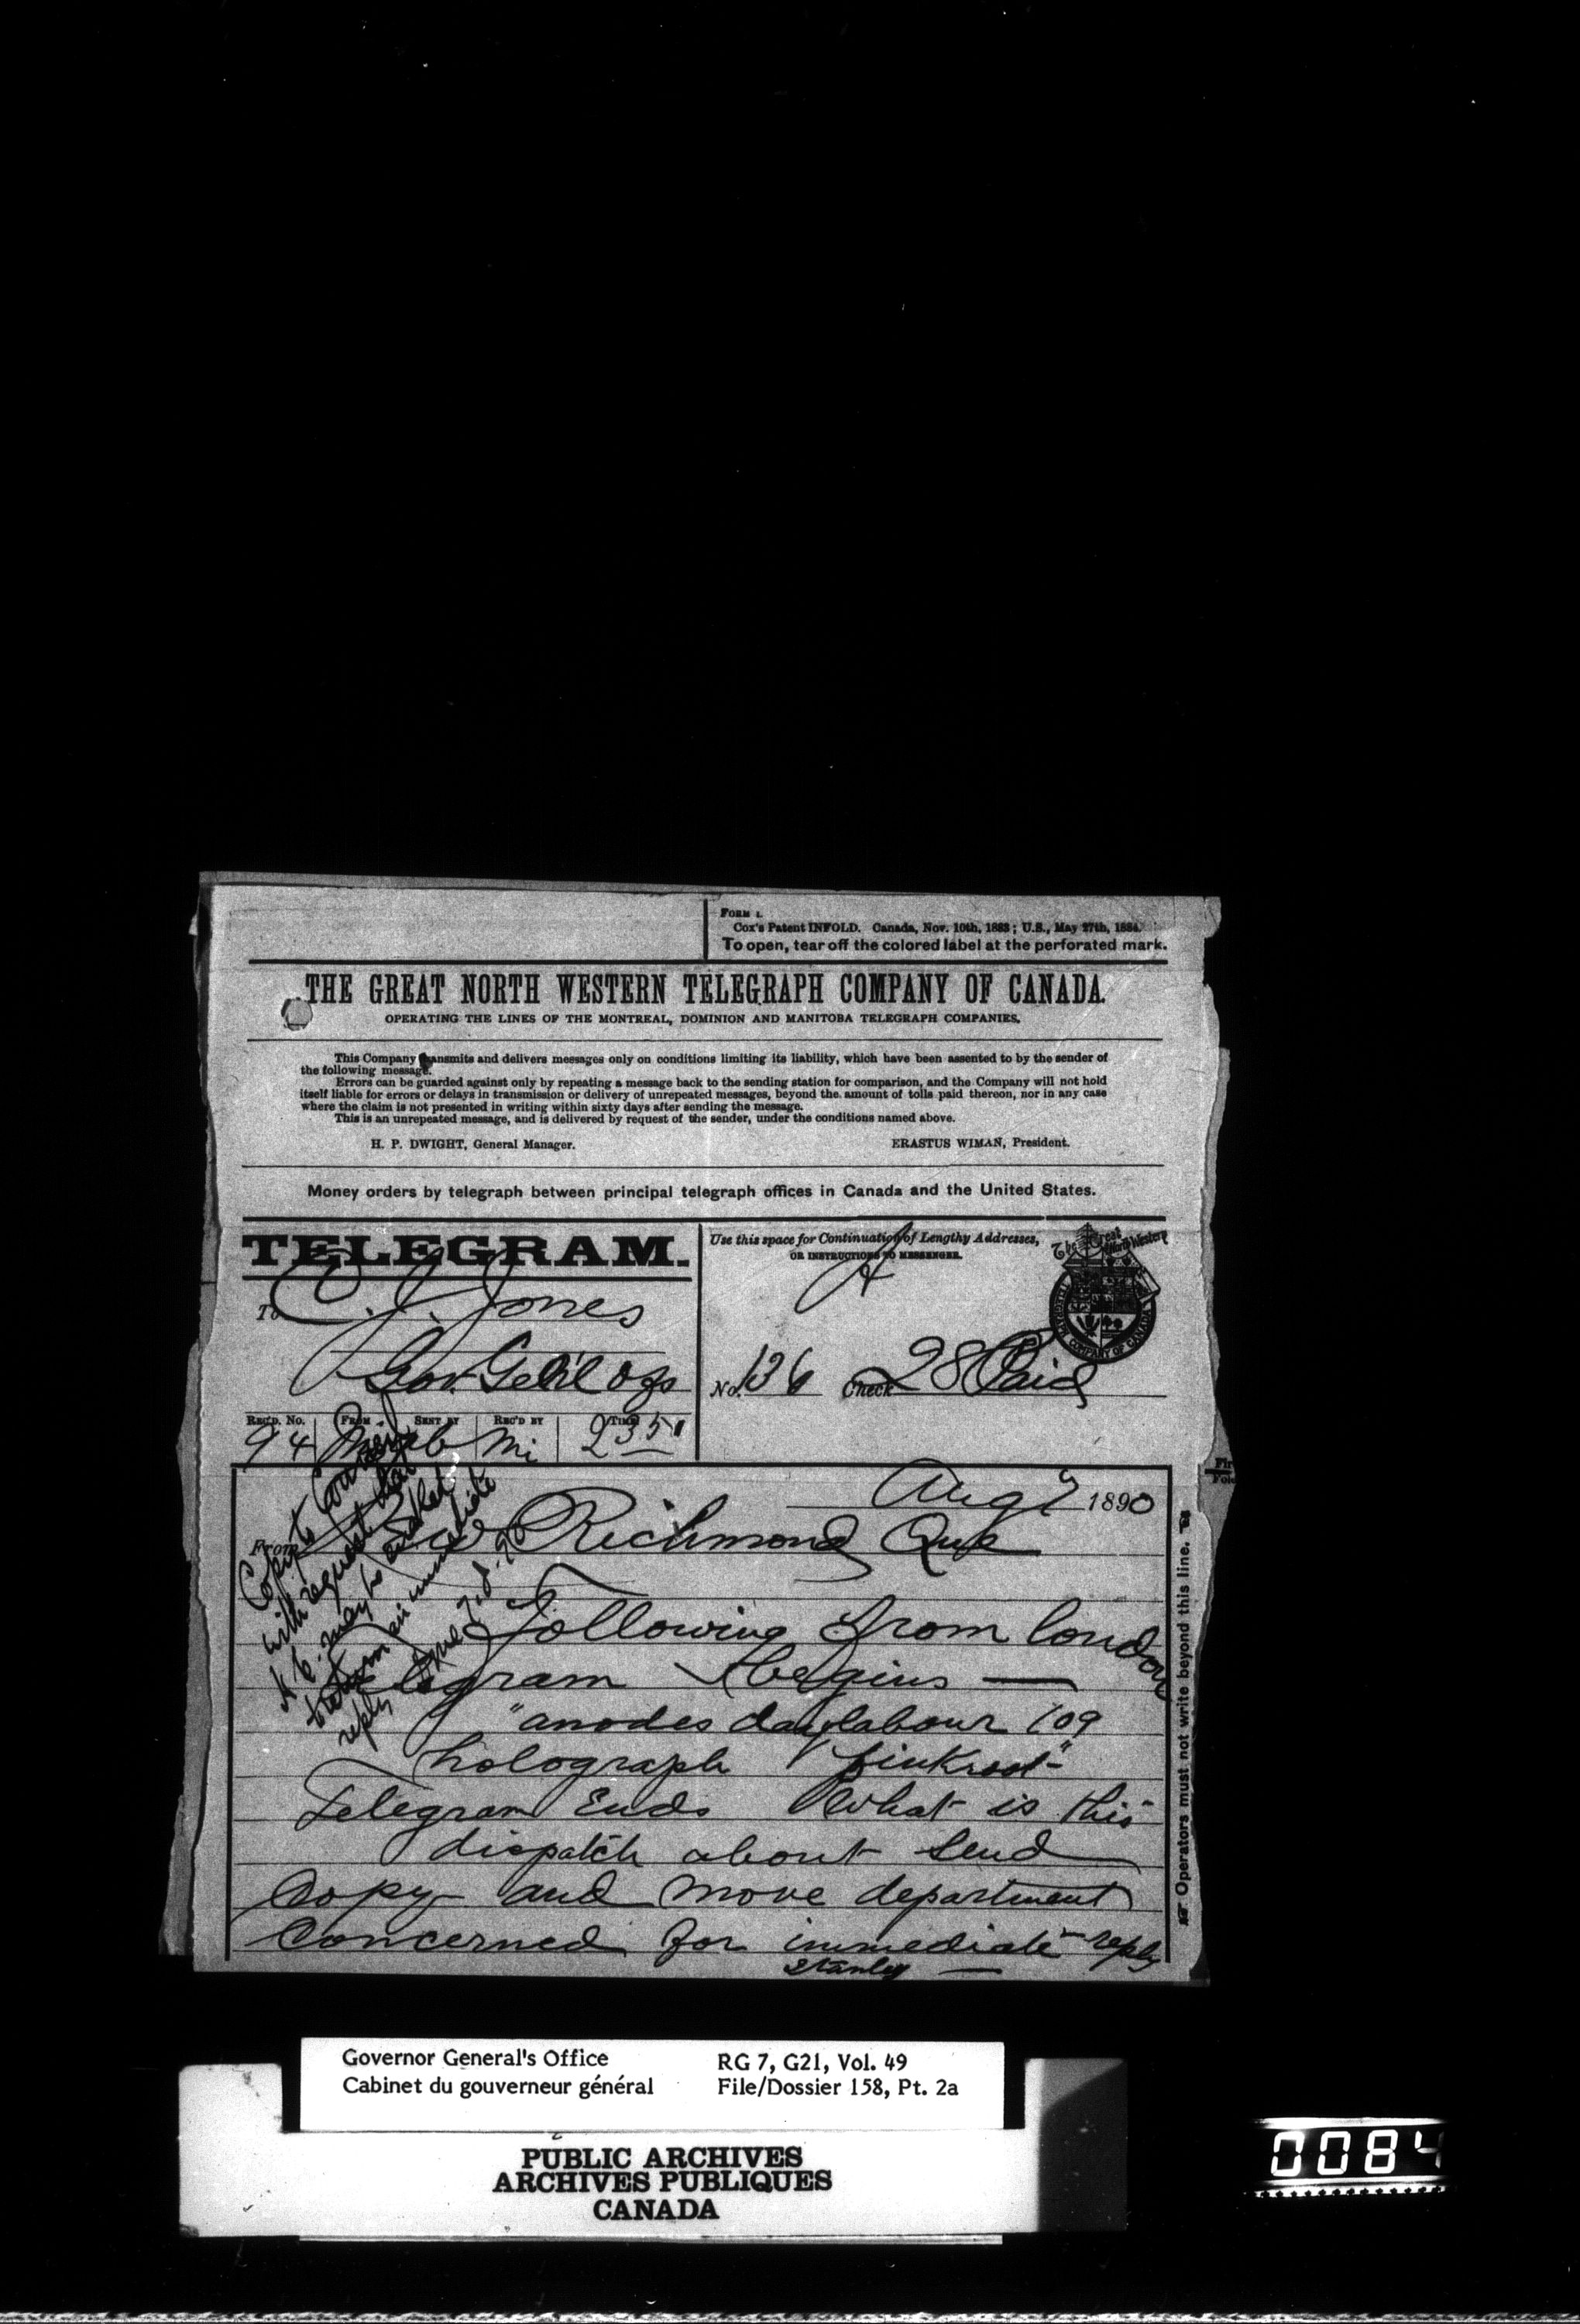 FORM 1.
Cox's Patent INFOLD. Canada, Nov. 10th, 1883; U.S., May 27th, 1884.
To open, tear off the colored label at the perforated mark.
THE GREAT NORTH WESTERN TELEGRAPH COMPANY OF CANADA.
OPERATING THE LINES OF THE MONTREAL, DOMINION AND MANITOBA TELEGRAPH COMPANIES.
This Company transmits and delivers messages only on conditions limiting its liability, which have been assented to by the sender of
the following message.
Errors can be guarded against only by repeating a message back to the sending station for comparison, and the Company will not hold
itself liable for errors or delays in transmission or delivery of unrepeated messages, beyond the amount of tolls paid thereon, nor in any case
where the claim is not presented in writing within sixty days after sending the message.
This is an unrepeated message, and is delivered by request of the sender, under the conditions named above.
H. P. DWIGHT, General Manager. ERASTUS WIMAN, President.
Money orders by telegraph between principal telegraph offices in Canada and the United States.
TELEGRAM.
Use this space for Continuation of Lengthy Addresses,
OR INSTRUCTIONS TO MESSENGER.
The Great North Western
TELEGRAPH COMPANY OF CANADA
To C. J. Jones
Gov. Genl Ofs
No. 136 Check 28 Paid
REC'D. No. FROM SENT BY REC'D BY TIME
94 mi 235
Aug 7 1890
From New Richmond Que
Copy to Council
with request that
H. C. may be enabled to
return an immediate
reply
7.8.90
Following from London
telegram begins —
"anodes daylabour 109
holograph pinkroot"
Telegram Ends What is this
dispatch about Send
Copy and move department
Concerned for immediate reply
Stanley —
Operators must not write beyond this line.
Governor General's Office RG 7, G21, Vol. 49
Cabinet du gouverneur général File/Dossier 158, Pt. 2a
PUBLIC ARCHIVES
ARCHIVES PUBLIQUES
CANADA
0084